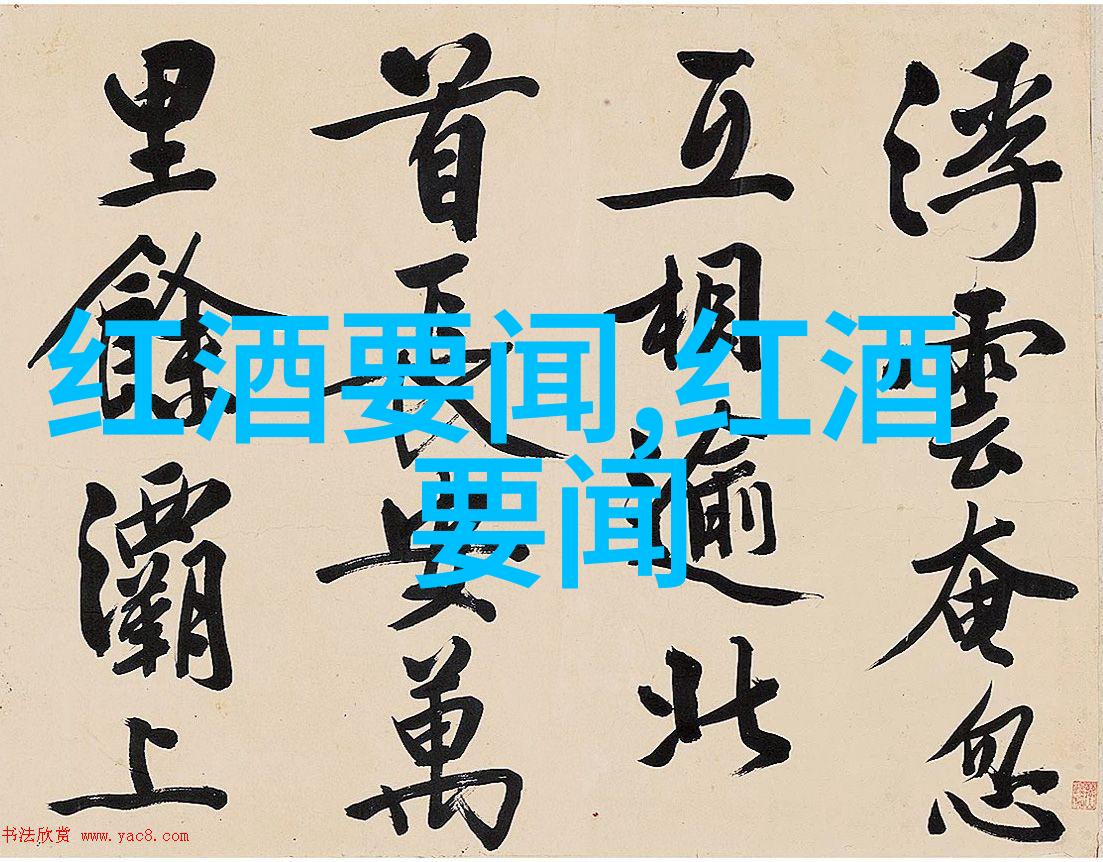 浮雲奄忽
互相逾北
首長安萬
里餘灞上
红酒要闻,红酒
要闻
书法欣赏 www.yac8.com